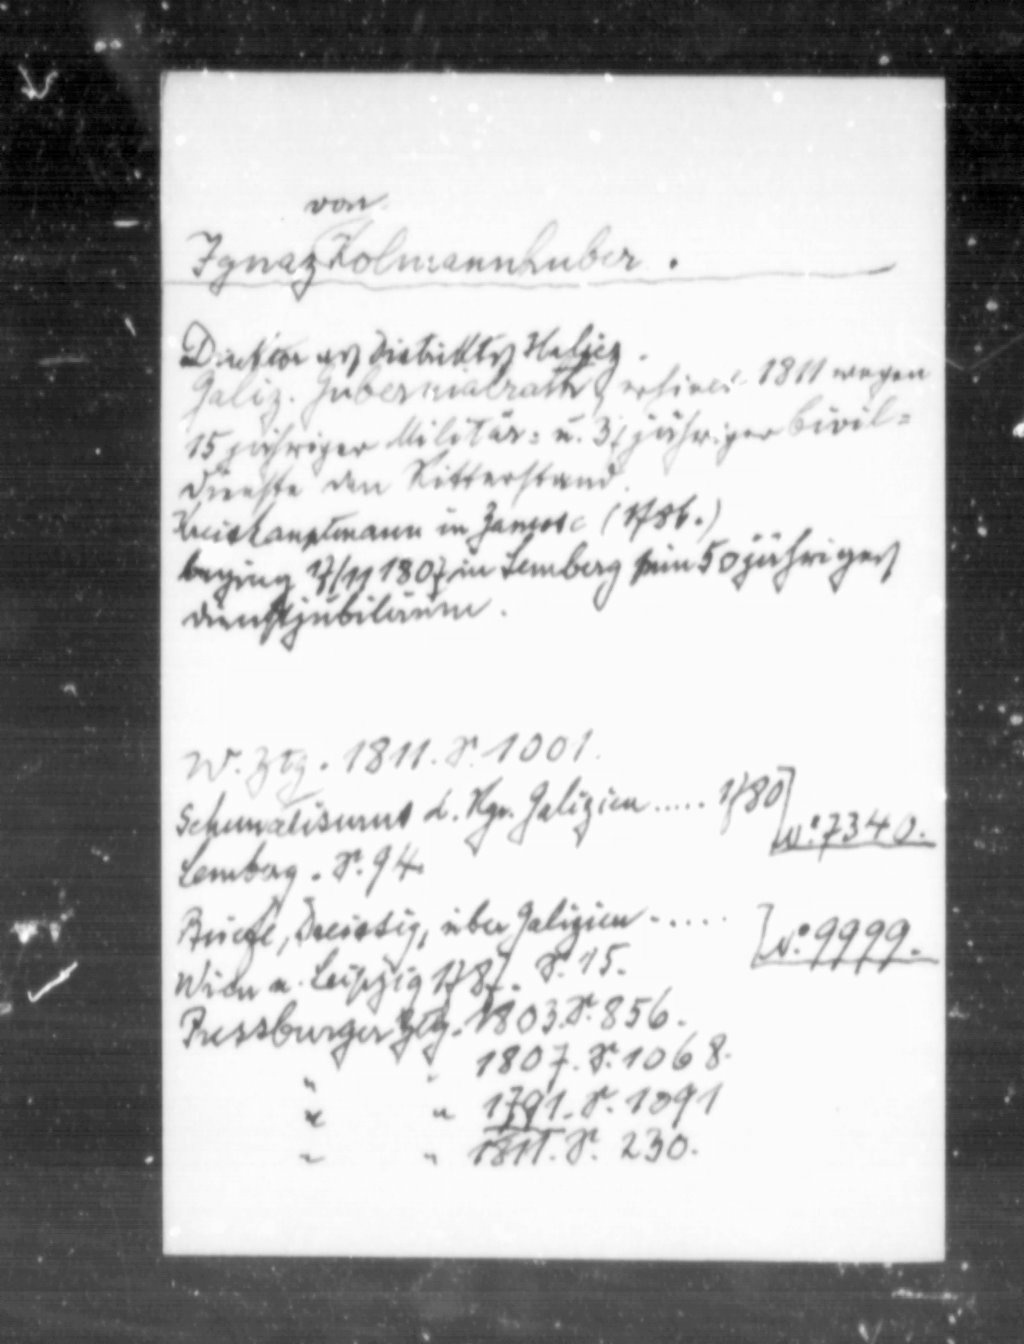 von
Ignaz Kolmannhuber.
Direktor des Distriktes Halicz.
Galiz. Gubernialrath, erhielt 1811 wegen
15 jähriger Militär= u. 31 jähriger Civil=
dienste den Ritterstand.
Kreishauptmann in Zamosc (1786.)
beging 17/11 1807 in Lemberg sein 50 jähriges
Dienstjubiläum.
W. Ztg. 1811. S. 1001.
Schematismus d. Kgr. Galizien ..... 1780
Lemberg. S. 94. No. 7340.
Briefe, Dreissig, über Galizien .....
Wien u. Leipzig 1787. S. 15. No. 9999.
Pressburger Ztg. 1803. S. 856.
" " 1807. S. 1068.
" " 1791. S. 1091
" " 1811. S. 230.